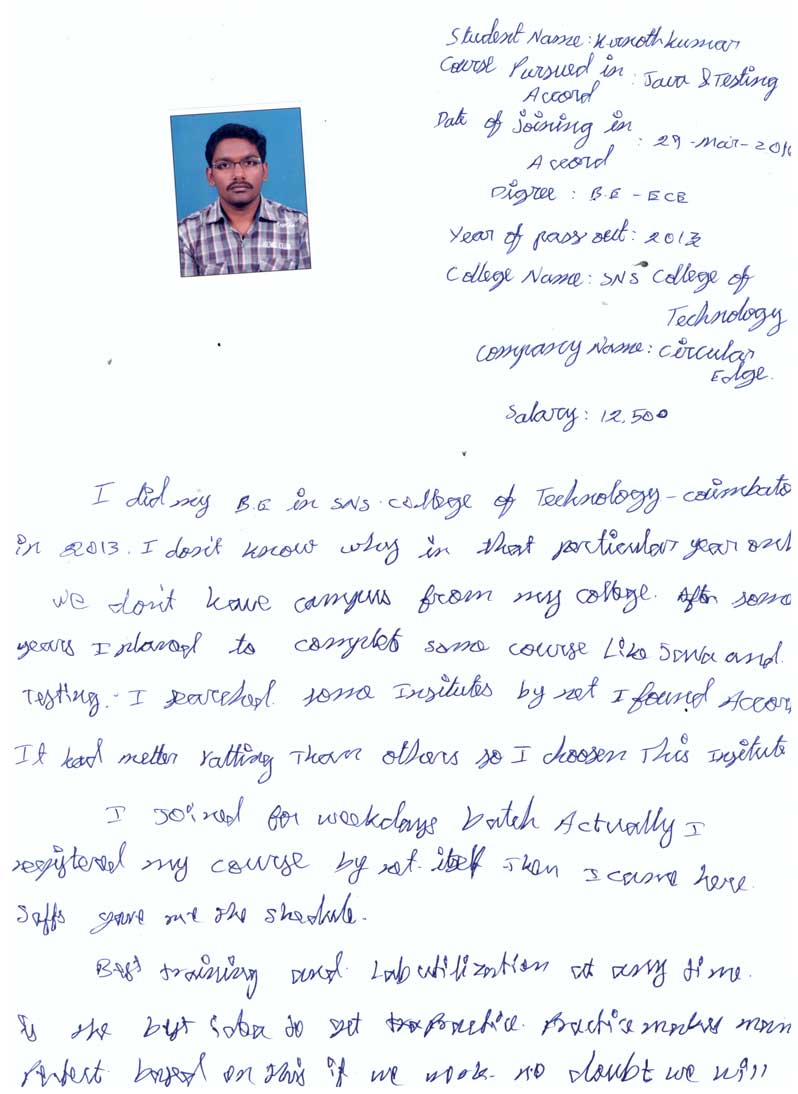 Student Name: Kvinothkumar
Course Pursued in : Java & Testing
Accord
Date of joining in : 29-Mar-201
Accord
Digree : B.E - ECE
Year of pass out: 2013
College Name: SNS College of
Technology
Company Name: Circular
Edge.
Salary: 12,500
I did my B.E in SNS college of Technology - coimbato
in 2013. I don't know why in that particular year onl
we don't have campus from my college. After some
years I planed to complet some course Like Java and
Testing. I searched some Insitutes by net I found Accor
It had metter ratting Than others so I choosen This Insitute
I Joined for weekdays batch Actually I
registered my course by net itself Then I came here.
Saffs gave me the shedule.
Best training and Lab utilization at any time.
Is the best idea to get Practice. Practice makes man
Perfect based on this if we work no doubt we will